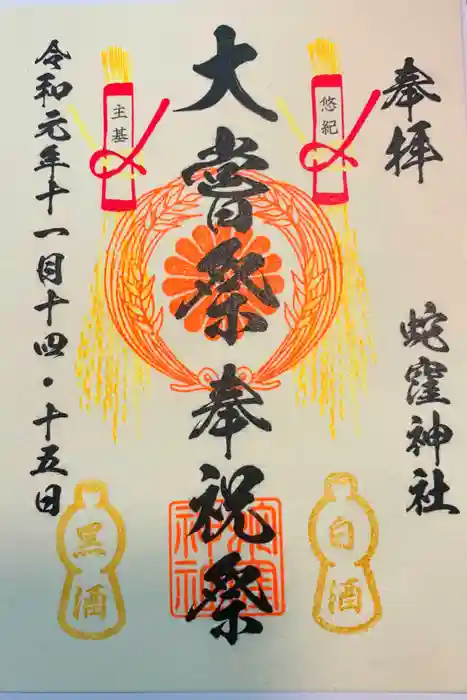 奉拝
蛇窪神社
悠紀
白酒
大嘗祭奉祝祭
蛇窪神社
主基
黒酒
令和元年十一月十四・十五日